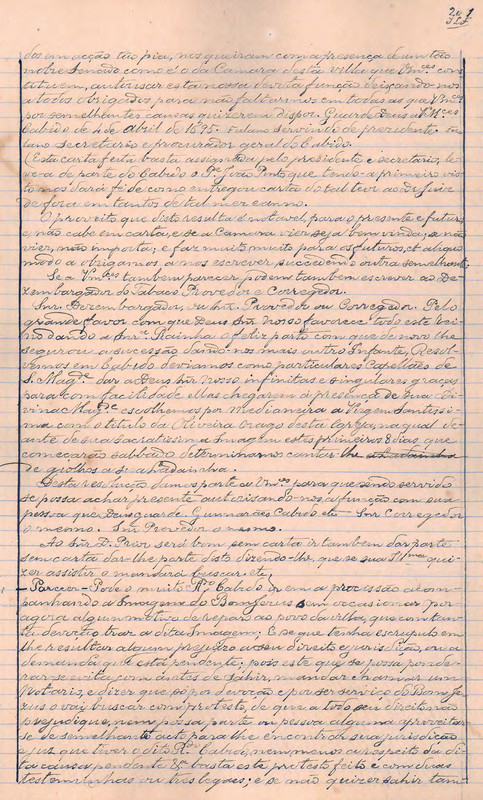 201
dos em acção tão pia, nos queiram com a presença de um tão
nobre Senado como é o da Camara desta villa que Vm.ces cons
tituem, autorisar esta nossa devota função deixando-nos
a todos obrigados para não faltarmos em todas as que Vm.ces
por semelhantes causas quizerem dispor. Guarde Deus a V. M.ces
Cabido de 4 de Abril de 1695. Fulano servindo de presidente. Fu
lano secretario e procurador geral do Cabido.
(Esta carta feita basta assignada pelo presidente e secretario, le
ve-a de parte do Cabido o P.e João Pinto que tendo-a primeiro vis
to nos dará fé de como entregou carta do tal teor ao dr Juiz
de fóra em tantos de tal mez e anno.
O proveito que disto resulta é notavel, para o presente e futuro
e não cabe em carta, e se a Camara vier seja bem vinda, se não
vier, não importa, e faz muito muito para os futuros, et aliquo
modo a obrigamos a nos escrever succedendo outra semelhante.
Se a Vm.ces tambem parecer podem tambem escrever ao De-
zembargador do Tabaco, Provedor e Corregedor.
Snr. Dezembargador, ou Snr. Provedor ou Corregedor. Pelo
grande favor com que Deus Snr. Nosso favorece todo este rei
no dando a Snr.a Rainha o feliz parto com que de novo lhe
segurou a successão dando-nos mais outro Infante, Resol-
vemos em Cabido deviamos como particulares Capellães de
S. Mag.de dar a Deus Snr. Nosso infinitas e singulares graças
para com facilidade ellas chegarem á presença de Sua Di-
vina Mag.de escolhemos por medianeira a Virgem Santissi-
ma com o titulo da Oliveira orago desta Igreja, na qual de-
ante de sua sacratissima Imagem estes primeiros 8 dias que
começarão sabbado determinamos cantar-lhe
de giolhos a sua ladainha.
Desta resolução damos parte a Vm.ces para que sendo servido
se possa achar presente autorisando-nos a função com sua
pessoa que Deus guarde. Guimarães Cabido etc. Snr. Corregedor
o mesmo. Snr. Provedor o mesmo.
Ao Snr. D. Prior será bom sem carta ir tambem dar parte
sem carta dar-lhe parte disto dizendo-lhe, que se sua Ill.ma qui-
zer assistir o mandará buscar. etc.
- Parecer - Póde o muito R.do Cabido ir em a procissão acom-
panhando a Imagem do Bom Jesus sem occasionar por
agora algum motivo de reparo ao povo da villa, que com tan-
ta devoção traz a dita Imagem; E se que tenha escrupulo em
lhe resultar algum prejuizo a seu direito e jurisdição, ou a
demanda que está pendente; pois este que se possa ponde-
rar se evita com ántes de sahir, mandar chamar um
Notario, e dizer que só por devoção e por ser serviço do Bom Je-
zus o vai buscar com protesto, de que a todo seu direito não
prejudique, nem possa parte ou pessoa alguma aproveitar-
se de semelhante acto para lhe encontrar sua jurisdição
a juz que tiver o dito R.do Cabido, nem menos a respeito da di-
ta causa pendente &.a basta este protesto feito e com duas
testemunhas ou tres legaes; e se não quizer sahir tam-